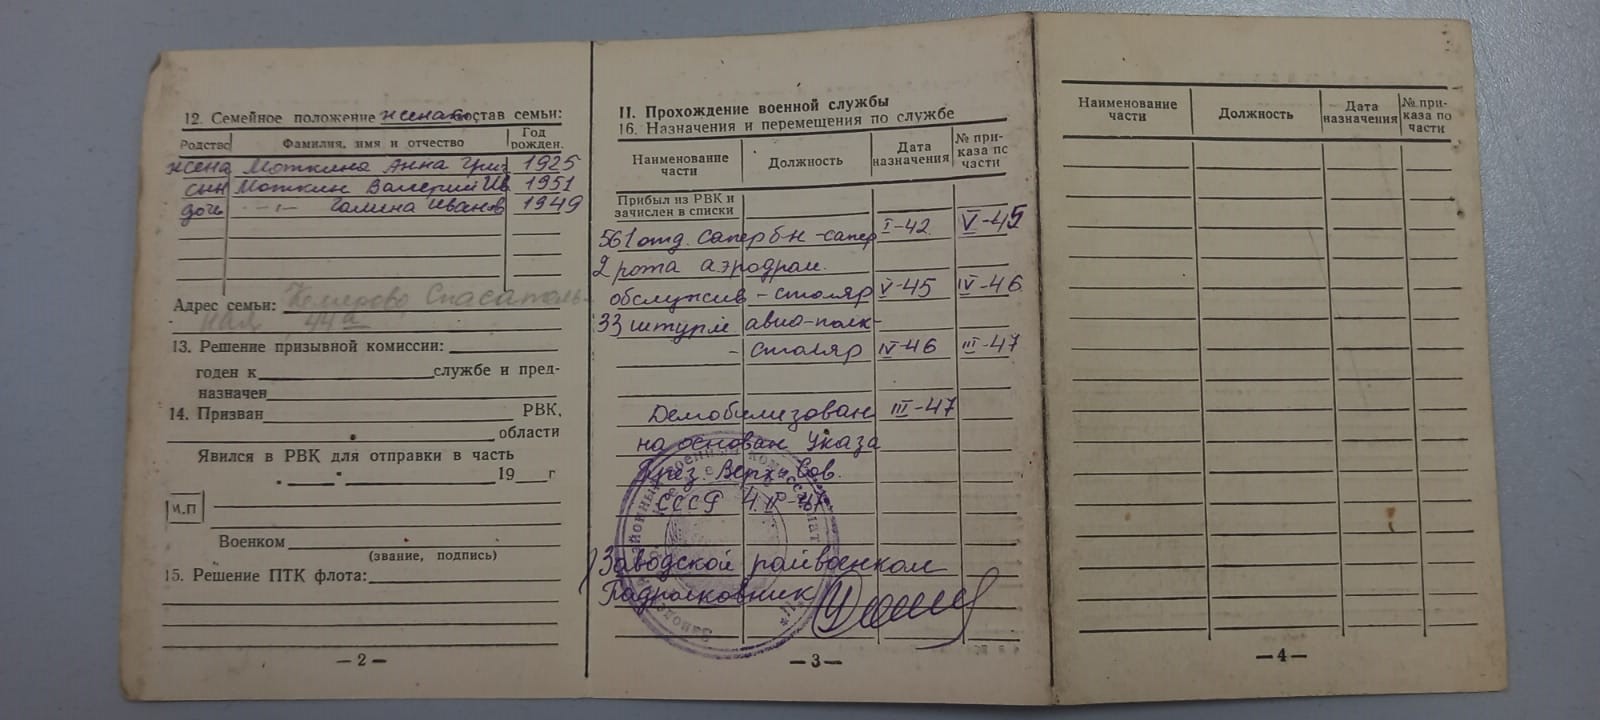 12. Семейное положение женат состав семьи:
Родство Фамилия, имя и отчество Год рожден.
жена Моткина Анна Григ 1925
сын Моткин Валерий Ив 1951
дочь -"- Галина Иванов 1949
Адрес семьи: Кемерово Спасатель-
ная 44а
13. Решение призывной комиссии:
годен к службе и пред-
назначен
14. Призван РВК,
области
Явился в РВК для отправки в часть
19 г
М.П
Военком
(звание, подпись)
15. Решение ПТК флота:
— 2 —
II. Прохождение военной службы
16. Назначения и перемещения по службе
Наименование части Должность Дата назначения № при-каза по части
Прибыл из РВК и
зачислен в списки
561 отд. сапер бн - сапер I-42 V-45
2 рота аэродром.
обслужив - столяр V-45 IV-46
33 штурм авио-полк-
- столяр IV-46 III-47
Демобилизован III-47
на основан Указа
През. Верх. Сов.
СССР
Заводской райвоенком
Подполковник
— 3 —
Наименование части Должность Дата назначения № при-каза по части
— 4 —